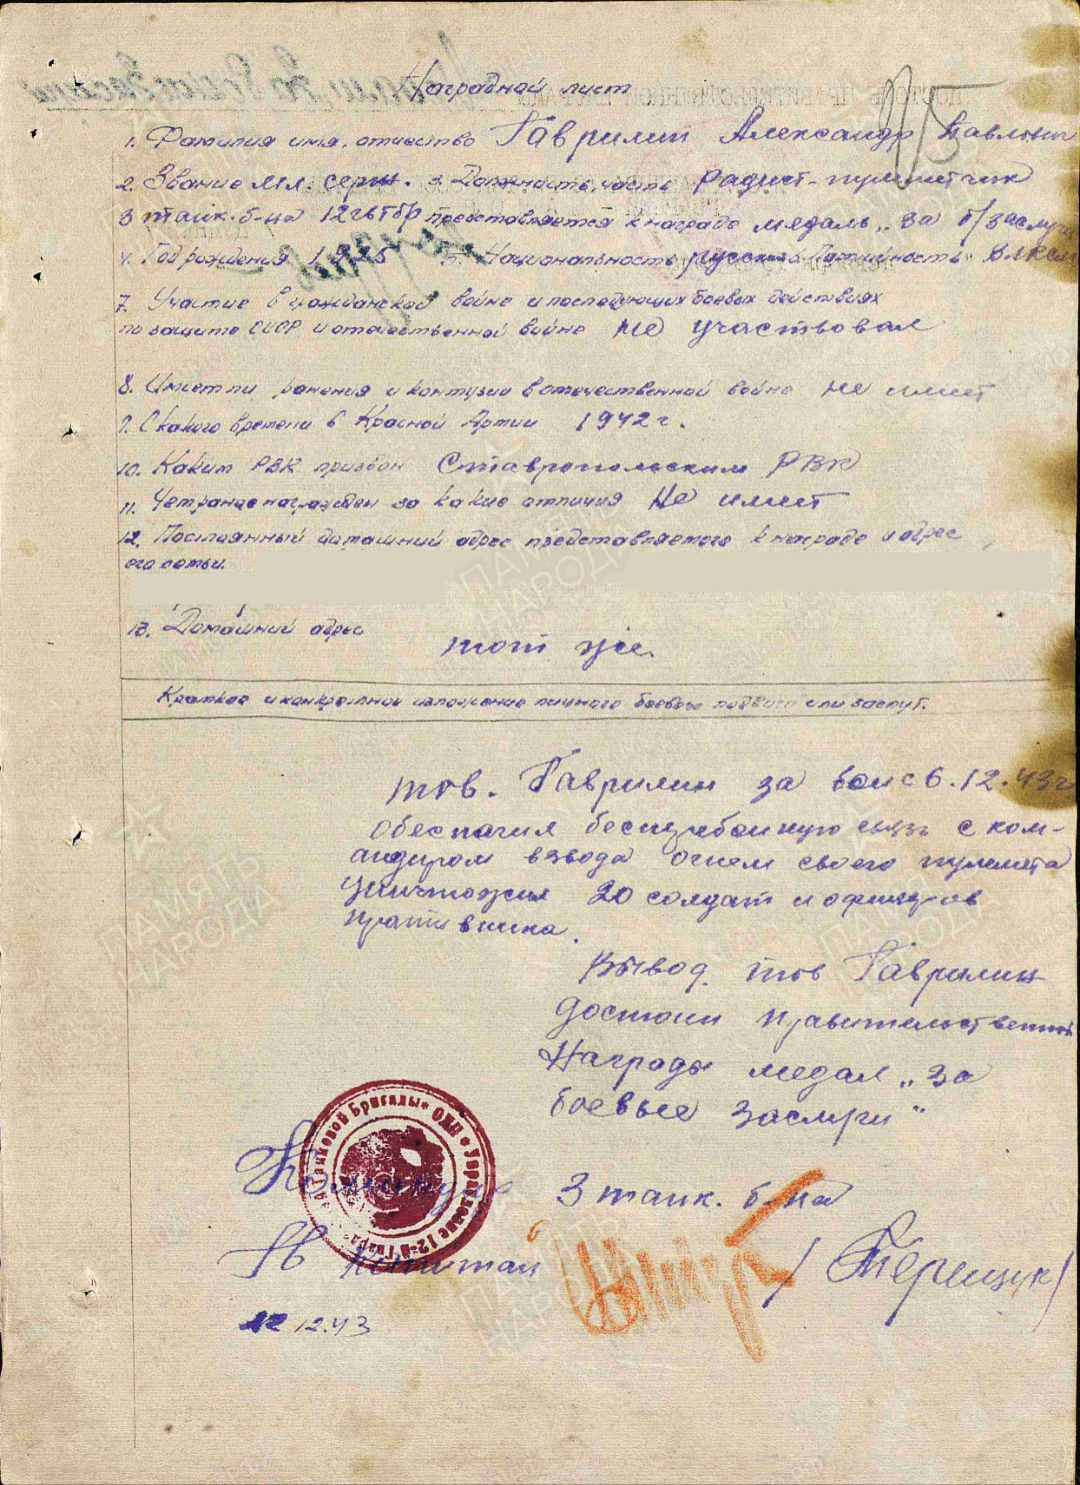 Наградной лист
1. Фамилия имя, отчество Гаврилин Александр Павлович
2. Звание мл. серж. 3. Должность, часть радист-пулеметчик
3 танк. б-на 12 гв тбр представляется к награде медаль „За б/заслуги
4. Год рождения 1925 5. Национальность русский 6. Партийность ВЛКСМ
7. Участие в гражданской войне и последующих боевых действиях
по защите СССР и отечественной войне не участвовал
8. Имеет ли ранения и контузии в отечественной войне не имеет
9. С какого времени в Красной Армии 1942 г.
10. Каким РВК призван Ставропольским РВК
11. Чем ранее награжден за какие отличия Не имеет
12. Постоянный домашний адрес представляемого к награде и адрес
его семьи.
13. Домашний адрес
тот же.
Краткое и конкретное изложение личного боевого подвига или заслуг.
тов. Гаврилин за бои с 6.12.43г
обеспечил бесперебойную связь с ком-
андиром взвода огнем своего пулемета
уничтожил 20 солдат и офицеров
противника.
Вывод. тов Гаврилин
достоин правительственной
Награды медал „За
боевые заслуги"
Командир 3 танк. б-на
Гв капитан / Терещук /
12.12.43
Управление 12-й Гвард. Танковой Бригады
ПАМЯТЬ
НАРОДА